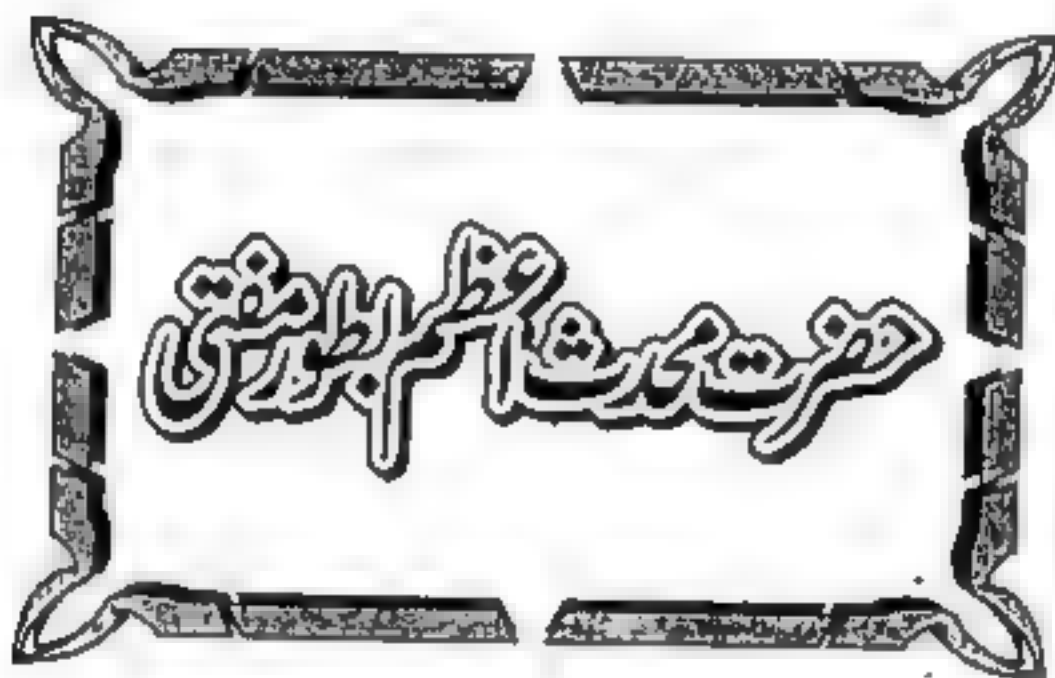 حضرت محدث اعظم بطور مفتی